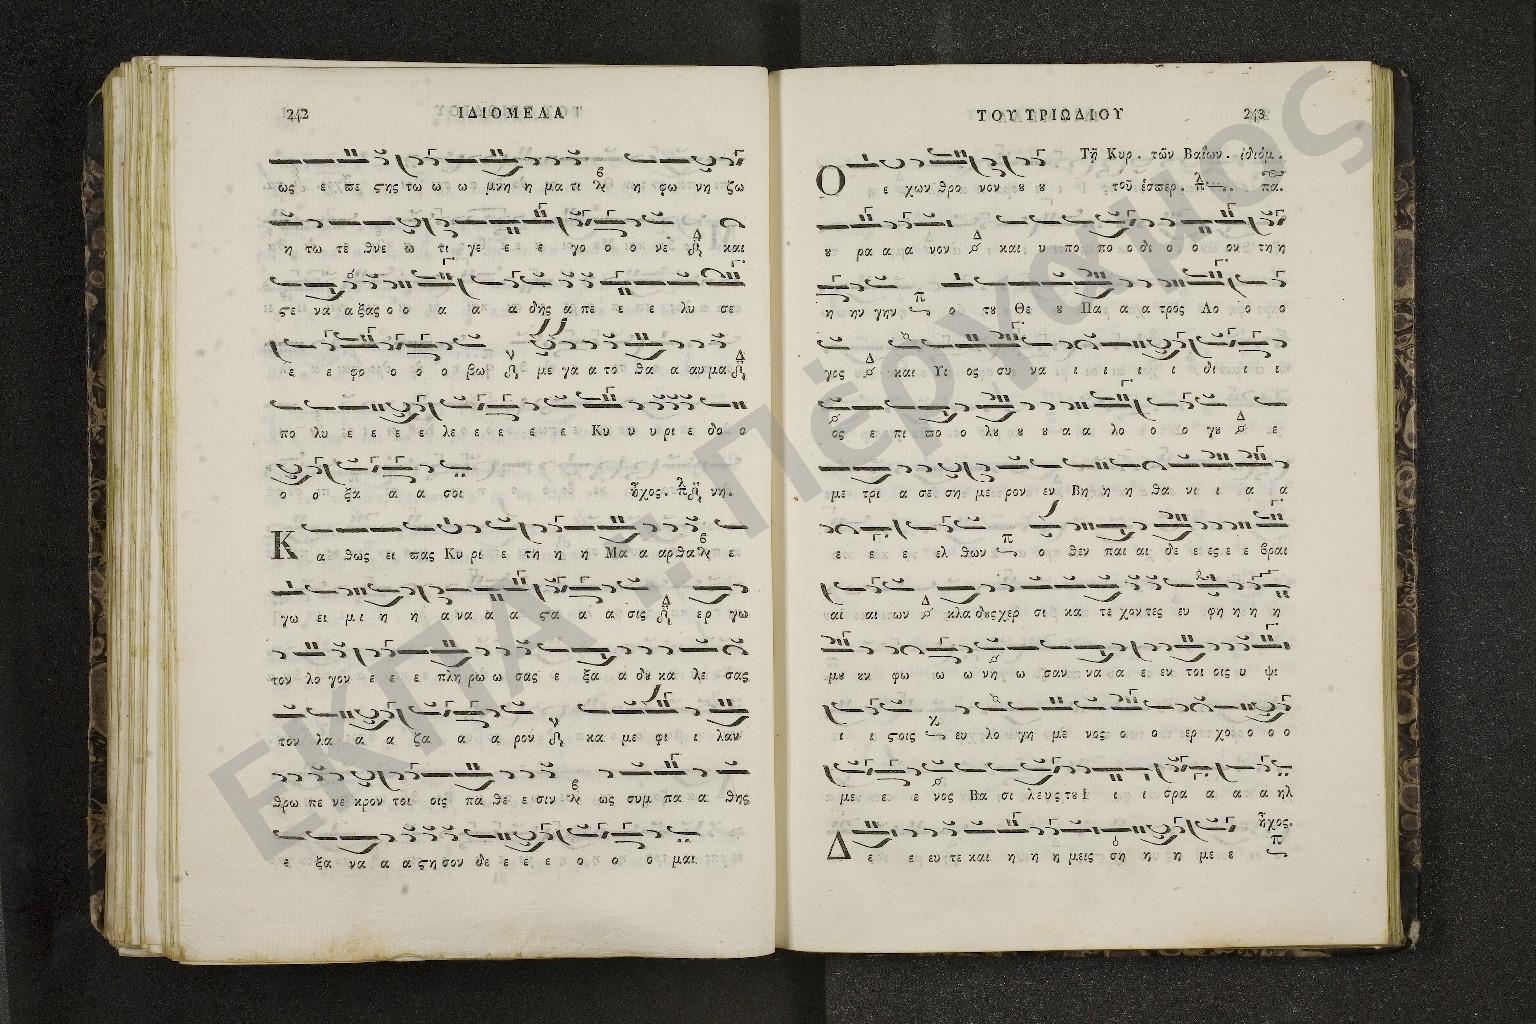 242 ΙΔΙΟΜΕΛΑ
ως ε πε ϛης τω ω ω μνη η μα τι η φω νη ζω
η τω τε θνε ω τι γε ε ε ε γο ο ο νε και
ϛε να α ξας ο ο α α α δης α πε ε ε ε λυ σε
ε ε φο ο ο ο βω με γα α το θα α αυ μα
πο λυ ε ε ε ε λε ε ε ε ε ε Κυ υ υ ρι ε δο ο
ο ο ξα α α σοι ἦχος. νη.
Κ α θως ει πας Κυ ρι ε τη η η Μα α αρ θα ε
γω ει μι η η α να α α ϛα α α σις ερ γω
τον λο γον ε ε ε πλη ρω ω σας ε ξα α δȣ κα λε σας
τον λα α α ζα α α ρον κα με φι ι λαν
θρω πε νε κρον τοι οις πα θε ε σιν ως συμ πα α θης
ε ξα να α α ϛη σον δε ε ε ε ο ο ο μαι
ΤΟΥ ΤΡΙΩΔΙΟΥ 243
Τῇ Κυρ. τῶν Βαΐων. ἰδιόμ.
Ο ε χων θρο νον ȣ ȣ τοῦ ἑσπερ. πα.
ȣ ρα α α νον και υ πο πο ο δι ο ο ον τη η
η ην γην ο τȣ Θε ȣ Πα α α τρος Λο ο ο
γος και Υι ος συ να ι ι ι ι ι δι ι ι
ος ε πι πο ο λȣ ȣ ȣ α α λο ο ο ο γȣ ε
με τρι α σε ση με ρον εν Βη η η θα νι ι α α
ε ε ε ελ θων ο θεν παι αι δε ε ες ε ε βραι
αι αι ων κλα δȣς χερ σι κα τε χον τες ευ φη η η η
μȣ ȣν φω ω ω νη ω σαν να α ε εν τοι οις υ ψι
ι ι ϛοις ευ λο γη με νος ο ο ερ χο ο ο ο
με ε ε νος Βα σι λευς τȣ Ι ι ι σρα α α α ηλ
Δ ε ε ευ τε και η η η μεις ση η η με ε ἦχος.
ΕΚΠΑ :: Πέργαμος